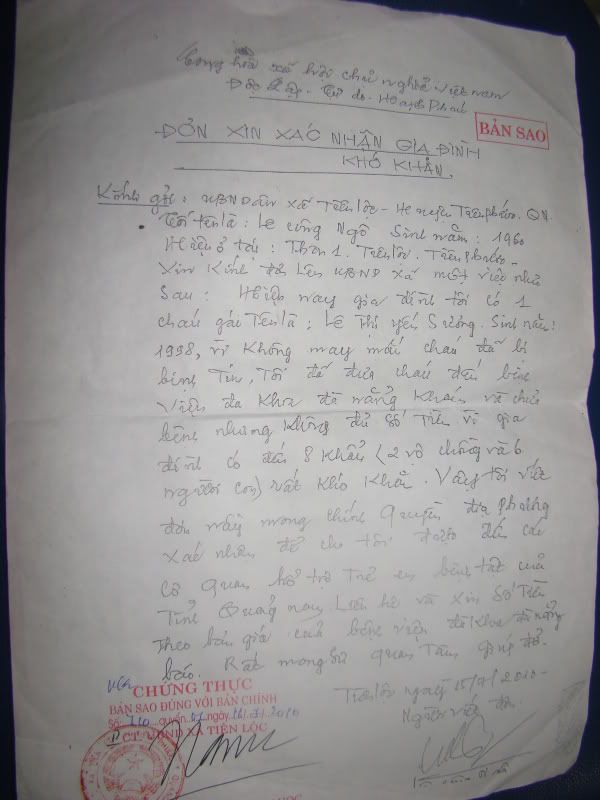 Cộng hòa xã hội chủ nghĩa Việt nam
Độc lập. Tự do. Hạnh Phúc
BẢN SAO
ĐƠN XIN XÁC NHẬN GIA ĐÌNH
KHÓ KHĂN.
Kính gửi: UBND xã Tiên lộc - Huyện Tiên phước. QN.
Tôi tên là: Lê công Ngô Sinh năm: 1960
Hiện ở tại: Thôn 1. Tiên lộc. Tiên phước.
Xin Kính đơn lên UBND xã một việc như
Sau: Hiện nay gia đình tôi có 1
cháu gái Tên là: Lê Thị yến Sương. Sinh năm:
1998, vì Không may mắn cháu đã bị
bệnh Tim, Tôi đã đưa cháu đến bệnh
viện đa khoa đà nẵng Khám và chữa
bệnh nhưng Không đủ Số Tiền vì gia
đình có đến 8 Khẩu (2 vợ chồng và 6
người con) rất Khó Khăn. Vậy tôi viết
đơn này mong chính Quyền địa phương
xác nhận để cho tôi được đến các
cơ Quan hổ trợ Trẻ em bệnh tật của
Tỉnh Quảng nam. Liên hệ và xin Số Tiền
Theo báo giá của bệnh viện đa Khoa đà nẵng
báo. Rất mong sự quan Tâm giúp đỡ.
Tiên lộc ngày 15/7/2010
Người viết đơn
CHỨNG THỰC
BẢN SAO ĐÚNG VỚI BẢN CHÍNH
Số: quyển ngày
CT. UBND XÃ TIÊN LỘC